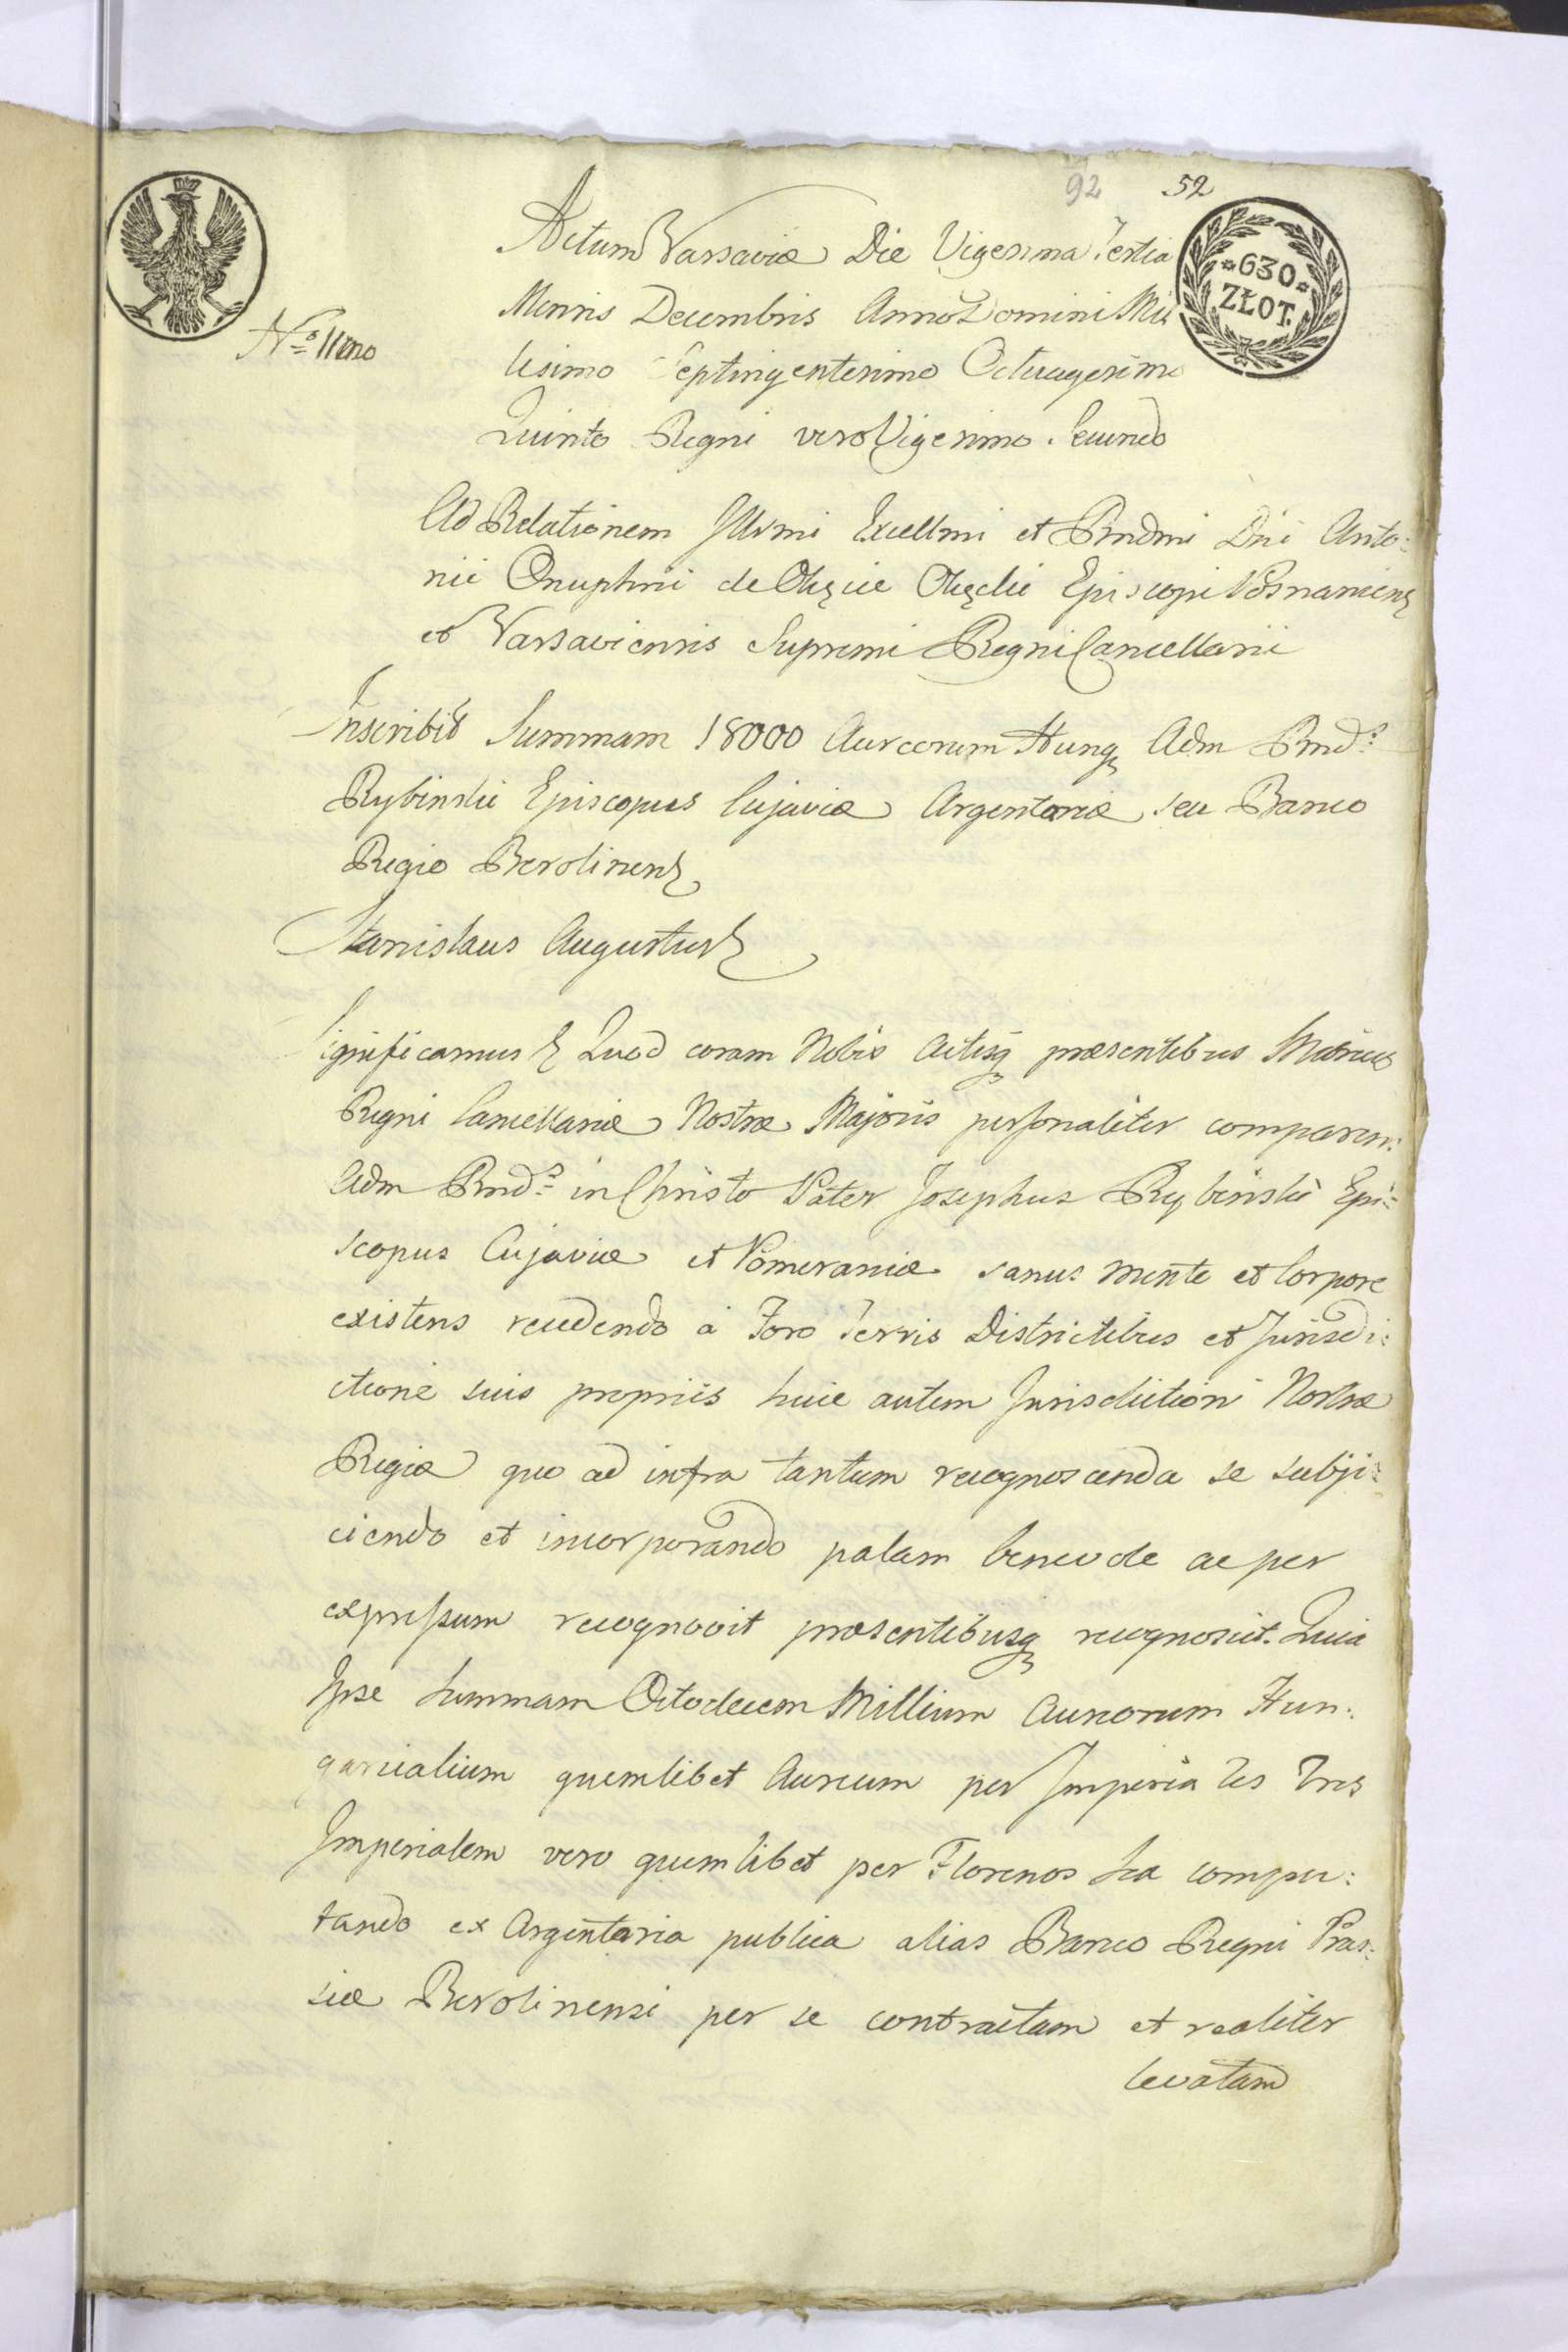 92 52
630
ZŁOT.
No 11mo
Actum Varsaviæ Die Vigesima Tertia
Mensis Decembris Anno Domini Mil
lesimo Septingentesimo Octuagesimo
Quinto Regni vero Vigesimo Secundo
Ad Relationem Illsmi Excellmi et Rndmi Dni Anto:
nii Onuphrii de Okęcie Okęcki Episcopi Posnaniens
et Varsaviensis Supremi Regni Cancellarii
Inscribit Summam 18000 Aureorum Hung Adm Rnds
Rybinski Episcopus Cujaviæ Argentariæ seu Banco
Regio Berolinens
Stanislaus Augustus
Significamus Quod coram Nobis Actisq præsentibus Metrices
Regni Cancellariæ Nostræ Majoris personaliter comparen:
Adm Rnds in Christo Pater Josephus Rybinski Epi:
scopus Cujaviæ et Pomeraniæ sanus mente et Corpore
existens recedendo à Foro Terris Districtibus et Jurisdi:
ctione suis propriis huic autem Jurisdictioni Nostræ
Regiæ quo ad infra tantum recognoscenda se subji:
ciendo et incorporando palam libere de ac per
expressum recognovit præsentibusq recognoscit. Quia
Ipse Summam Octodecem Millium Aureorum Hun:
garicalium quemlibet Aureum per Imperiales Tres
Imperialem vero quemlibet per Florenos Sex compu:
tando ex Argentaria publica alias Banco Regni Prus:
siæ Berolinensi per se contractam et realiter
levatam